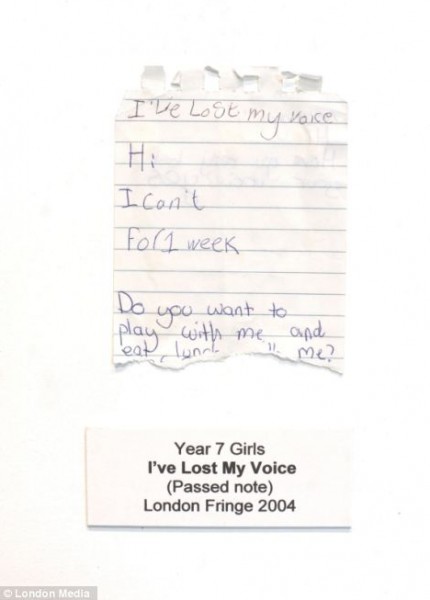 I've Lost my voice
Hi
I can't
for 1 week
Do you want to
play with me and
eat me?
Year 7 Girls
I've Lost My Voice
(Passed note)
London Fringe 2004
© London Media